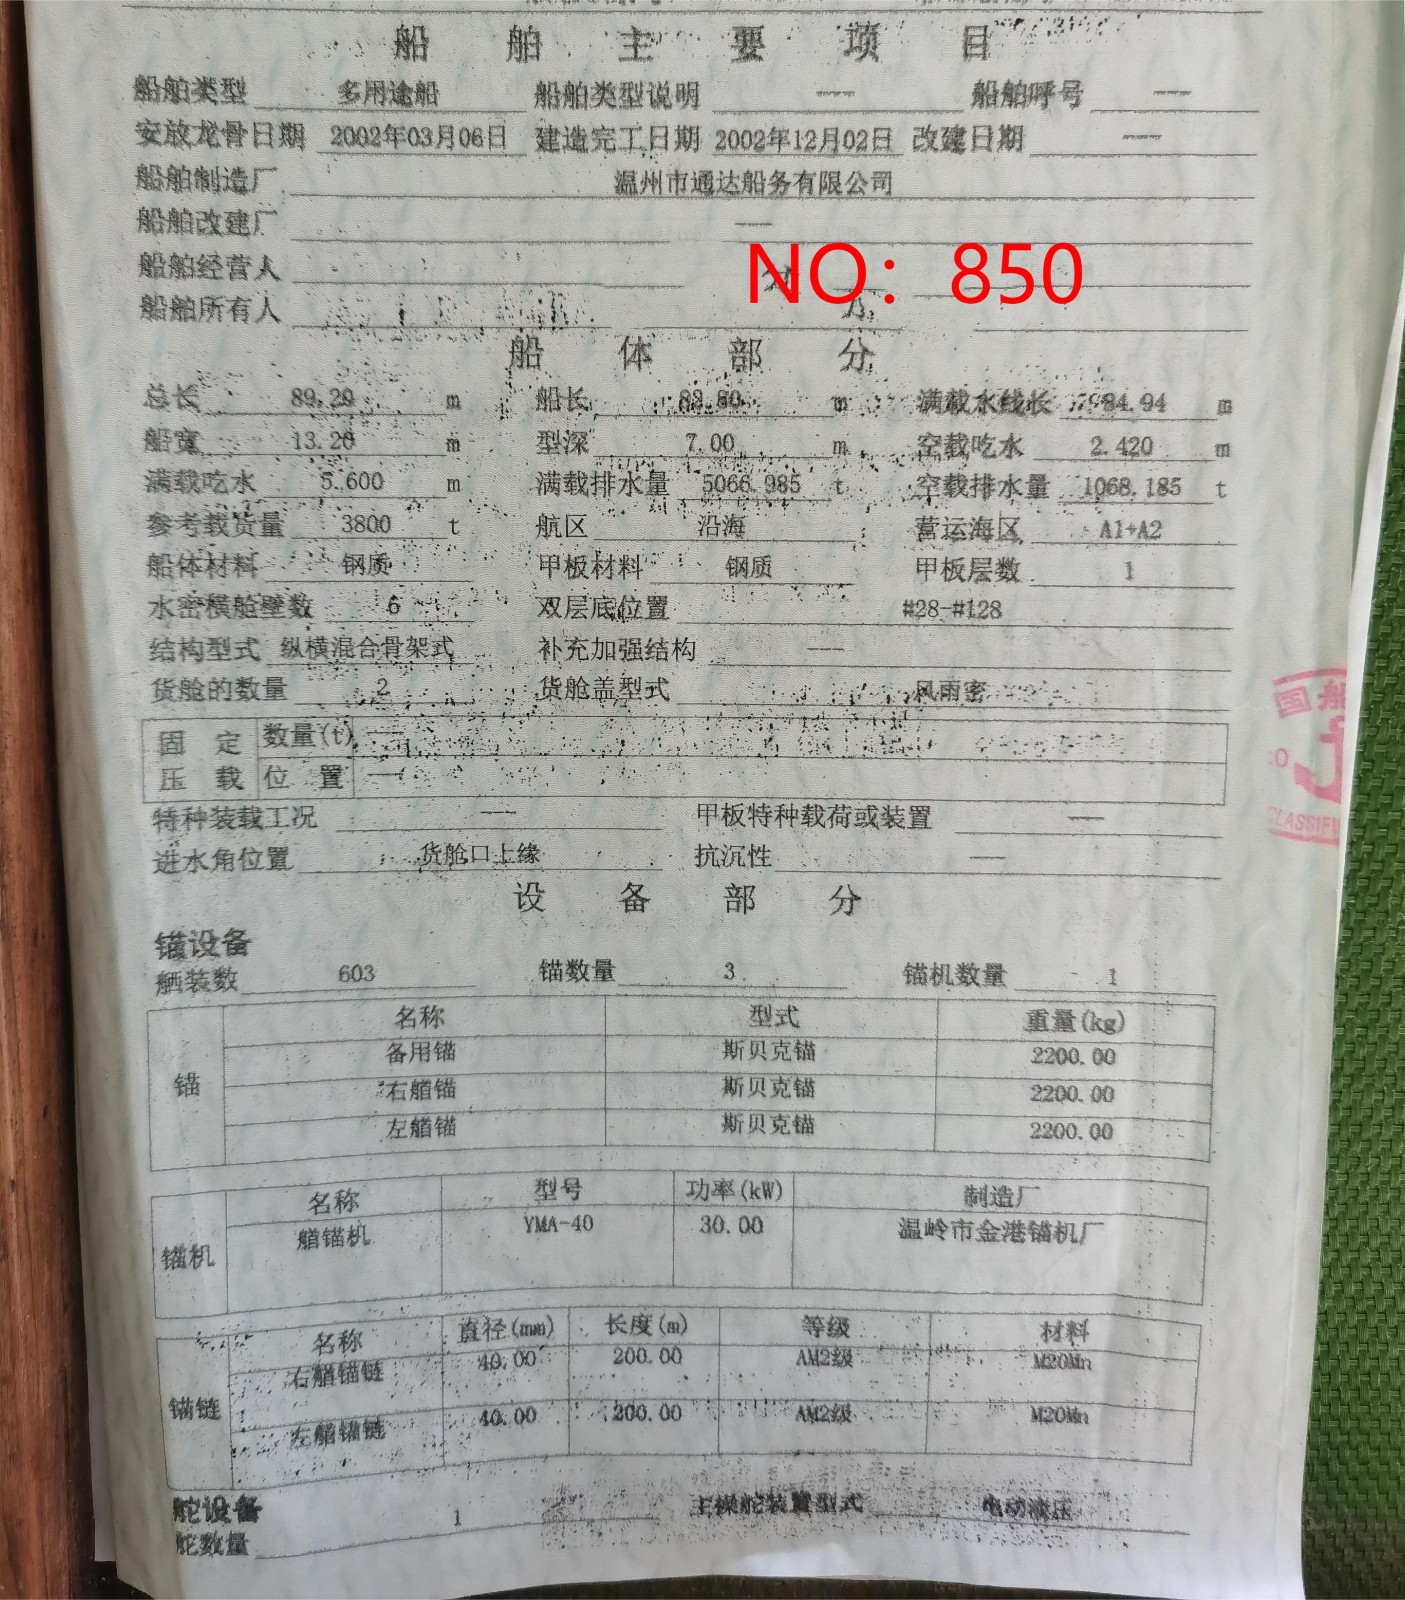 船舶主要项目
船舶类型 多用途船 船舶类型说明 —— 船舶呼号 ——
安放龙骨日期 2002年03月06日 建造完工日期 2002年12月02日 改建日期 ——
船舶制造厂 温州市通达船务有限公司
船舶改建厂 ——
NO：850
船舶经营人
船舶所有人
船体部分
总长 89.20 m 船长 m 满载水线长 84.94 m
船宽 13.20 m 型深 7.00 m 空载吃水 2.420 m
满载吃水 5.600 m 满载排水量 5066.985 t 空载排水量 1068.185 t
参考载货量 3800 t 航区 沿海 营运海区 A1+A2
船体材料 钢质 甲板材料 钢质 甲板层数 1
水密横舱壁数 6 双层底位置 #28-#128
结构型式 纵横混合骨架式 补充加强结构 ——
货舱的数量 2 货舱盖型式 风雨密
固定 数量(t) ——
压载 位置 ——
特种装载工况 —— 甲板特种载荷或装置 ——
进水角位置 货舱口上缘 抗沉性 ——
设备部分
锚设备
舾装数 603 锚数量 3 锚机数量 1
名称 型式 重量(kg)
备用锚 斯贝克锚 2200.00
锚 右艏锚 斯贝克锚 2200.00
左艏锚 斯贝克锚 2200.00
名称 型号 功率(kW) 制造厂
锚机 艏锚机 YMA-40 30.00 温岭市金港锚机厂
名称 直径(mm) 长度(m) 等级 材料
右艏锚链 40.00 200.00 AM2级 M20Mn
锚链
左艏锚链 40.00 200.00 AM2级 M20Mn
舵设备
舵数量 1 主操舵装置型式 电动液压
国 船
CLASSIFI